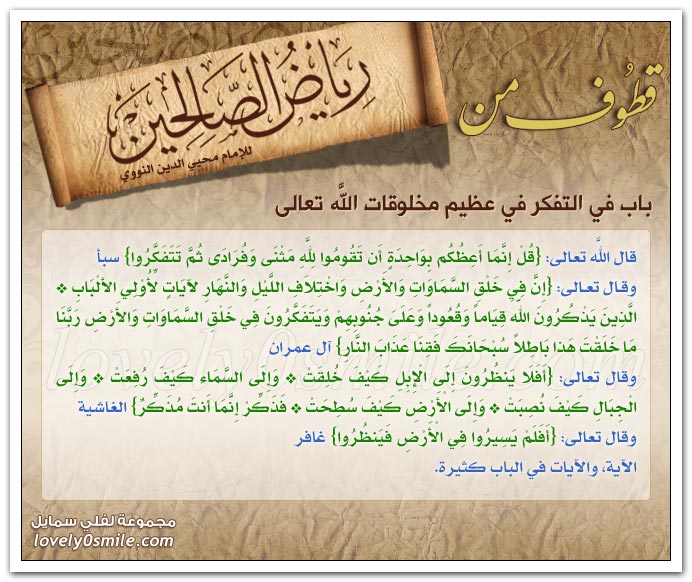 قطوف من
رياض الصالحين
للإمام محيي الدين النووي
باب في التفكر في عظيم مخلوقات الله تعالى
قال اللَّه تعالى: {قُلْ إِنَّمَا أَعِظُكُم بِوَاحِدَةٍ أَن تَقُومُوا لِلَّهِ مَثْنَى وَفُرَادَى ثُمَّ تَتَفَكَّرُوا} سبأ
وقال تعالى: {إِنَّ فِي خَلْقِ السَّمَاوَاتِ وَالأَرْضِ وَاخْتِلاَفِ اللَّيْلِ وَالنَّهَارِ لآيَاتٍ لِّأُوْلِي الألْبَابِ ❖
الَّذِينَ يَذْكُرُونَ اللّهَ قِيَاماً وَقُعُوداً وَعَلَىَ جُنُوبِهِمْ وَيَتَفَكَّرُونَ فِي خَلْقِ السَّمَاوَاتِ وَالأَرْضِ رَبَّنَا
مَا خَلَقْتَ هَذا بَاطِلاً سُبْحَانَكَ فَقِنَا عَذَابَ النَّارِ} آل عمران
وقال تعالى: {أَفَلَا يَنظُرُونَ إِلَى الْإِبِلِ كَيْفَ خُلِقَتْ ❖ وَإِلَى السَّمَاء كَيْفَ رُفِعَتْ ❖ وَإِلَى
الْجِبَالِ كَيْفَ نُصِبَتْ ❖ وَإِلَى الْأَرْضِ كَيْفَ سُطِحَتْ ❖ فَذَكِّرْ إِنَّمَا أَنتَ مُذَكِّرٌ} الغاشية
وقال تعالى: {أَفَلَمْ يَسِيرُوا فِي الْأَرْضِ فَيَنظُرُوا} غافر
الآية، والآيات في الباب كثيرة.
مجموعة لفلي سمايل
lovely0smile.com